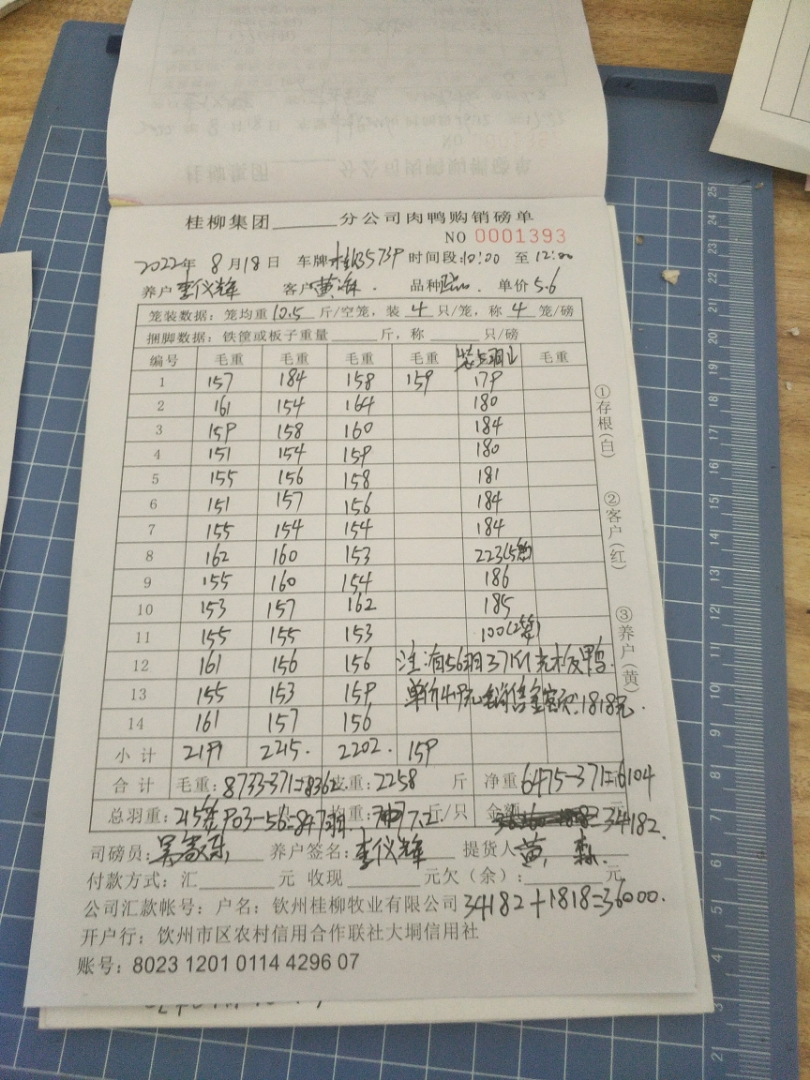 桂柳集团______分公司肉鸭购销磅单
NO 0001393
2022年 8月18日 车牌桂 时间段:10:00 至 12:00
养户 李仪辉 客户 黄 品种 单价 5.6
笼装数据:笼均重 10.5 斤/空笼,装 4 只/笼,称 4 笼/磅
捆脚数据:铁筐或板子重量______斤,称______只/磅
编号 毛重 毛重 毛重 毛重 毛重
1 157 184 158 159 179
2 161 154 164 180
3 159 158 160 184
4 151 154 159 180
5 155 156 158 181
6 151 157 156 184
7 155 154 154 184
8 162 160 153 223(5笼)
9 155 160 154 186
10 153 157 162 185
11 155 155 153 100(2笼)
12 161 156 156 注:有56羽371斤 鸭
13 155 153 159 单价4.9元 销售金额:1818元.
14 161 157 156
小计 2191 2215. 2202. 159
合计 毛重:8733-371=8362 皮重:2258 斤 净重 6475-371=6104
总羽重:215笼 903-56=847羽 均重: 7.2 斤/只 金额 34182. 元
司磅员: 养户签名:李仪辉 提货人 黄
付款方式:汇______元 收现______元欠(余):______元
公司汇款帐号:户名:钦州桂柳牧业有限公司 34182+1818=36000.
开户行:钦州市区农村信用合作联社大垌信用社
账号:8023 1201 0114 4296 07
①存根(白)
②客户(红)
③养户(黄)